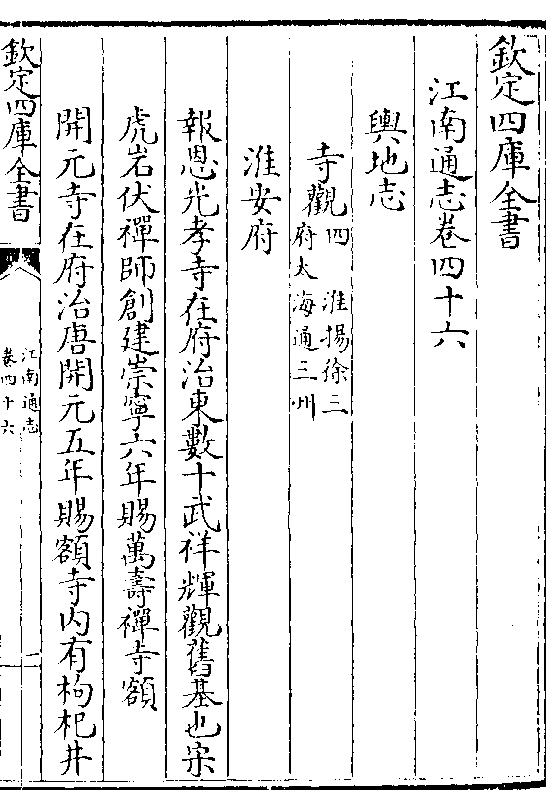 欽定四庫全書
江南通志卷四十六
輿地志
寺觀四 淮揚徐三
府太海通三州
淮安府
報恩光孝寺在府治東數十武祥輝觀舊基也宋
虎岩伏禪師創建崇寧六年賜萬壽禪寺額
開元寺在府治唐開元五年賜額寺内有枸杞井
欽定四庫全書
江南通志
卷四十六